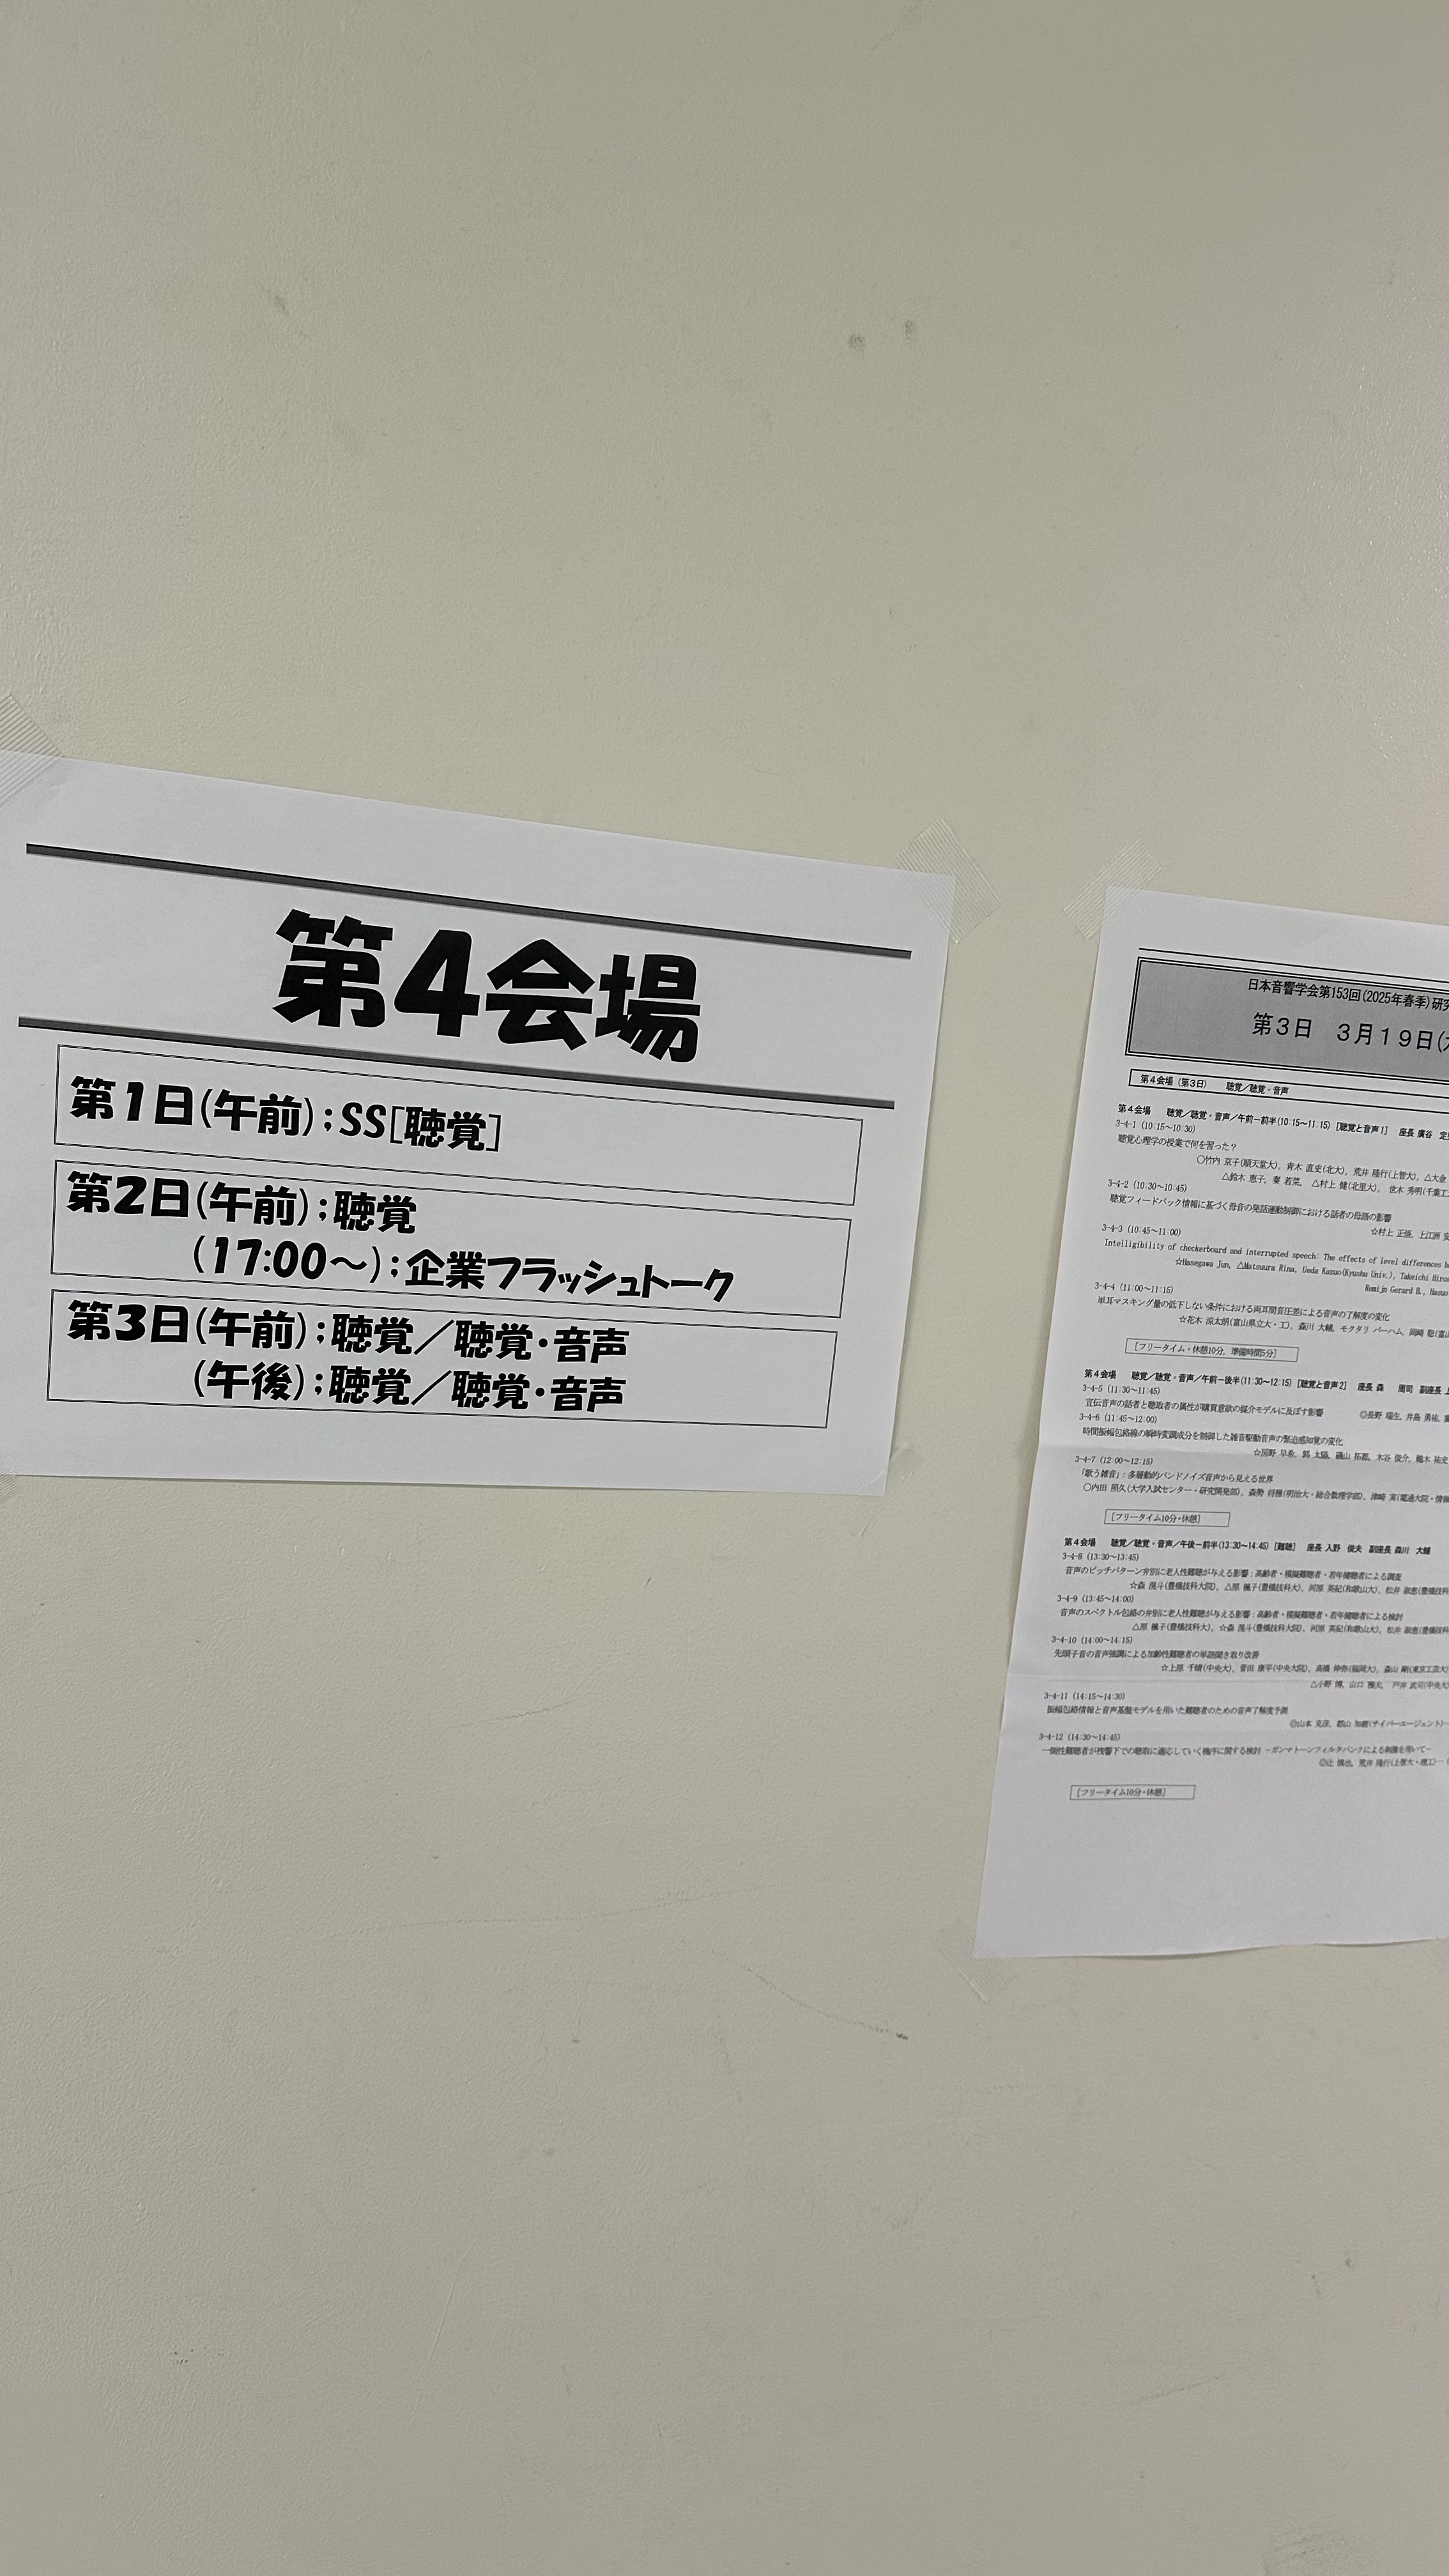 第4会場
第1日(午前);SS[聴覚]
第2日(午前);聴覚
(17:00～);企業フラッシュトーク
第3日(午前);聴覚／聴覚・音声
(午後);聴覚／聴覚・音声
日本音響学会第153回(2025年春季)研究
第3日 3月19日(
第4会場 (第3日) 聴覚／聴覚・音声
第4会場 聴覚／聴覚・音声／午前－前半(10:15～11:15) [聴覚と音声1] 座長 廣谷
3-4-1 (10:15～10:30)
聴覚心理学の授業で何を習った？
○竹内 京子(順天堂大), 青木 直史(北大), 荒井 隆行(上智大), △大金
△鈴木 恵子, 秦 若菜, △村上 健(北里大), 世木 秀明(千葉工
3-4-2 (10:30～10:45)
聴覚フィードバック情報に基づく母音の発話運動制御における話者の母語の影響
☆村上 正悟, 上江洲
3-4-3 (10:45～11:00)
Intelligibility of checkerboard and interrupted speech: The effects of level differences
☆Hasegawa Jun, △Matsuura Rina, Ueda Kazuo(Kyushu Univ.), Takeichi
Remijn Gerard B.,
3-4-4 (11:00～11:15)
単耳マスキング量の低下しない条件における両耳間音圧差による音声の了解度の変化
☆花木 涼太朗(富山県立大・工), 森川 大輔, モクタリ パーハム, 岡崎 聡
[フリータイム・休憩10分, 準備時間5分]
第4会場 聴覚／聴覚・音声／午前－後半(11:30～12:15) [聴覚と音声2] 座長 森 周司 副座長 上
3-4-5 (11:30～11:45)
宣伝音声の話者と聴取者の属性が購買意欲の媒介モデルに及ぼす影響 ◎長野 瑞生, 井島 勇祐,
3-4-6 (11:45～12:00)
時間振幅包絡線の瞬時変調成分を制御した雑音駆動音声の緊迫感知覚の変化
☆房野 早希, 郭 太陽, 磯山 拓都, 木谷 俊介, 鵜木 祐史
3-4-7 (12:00～12:15)
「歌う雑音」: 多層動的バンドノイズ音声から見える世界
○内田 照久(大学入試センター・研究開発部), 森勢 将雅(明治大・総合数理学部), 津崎 実(電通大院・情報
[フリータイム10分・休憩]
第4会場 聴覚／聴覚・音声／午後－前半(13:30～14:45) [難聴] 座長 入野 俊夫 副座長 森川 大輔
3-4-8 (13:30～13:45)
音声のピッチパターン弁別に老人性難聴が与える影響 : 高齢者・模擬難聴者・若年健聴者による調査
☆森 滉斗(豊橋技科大院), △原 楓子(豊橋技科大), 河原 英紀(和歌山大), 松井 淑恵(豊橋技科
3-4-9 (13:45～14:00)
音声のスペクトル包絡の弁別に老人性難聴が与える影響 : 高齢者・模擬難聴者・若年健聴者による検討
△原 楓子(豊橋技科大), ☆森 滉斗(豊橋技科大院), 河原 英紀(和歌山大), 松井 淑恵(豊橋技科
3-4-10 (14:00～14:15)
先頭子音の音声強調による加齢性難聴者の単語聞き取り改善
☆上原 千晴(中央大), 菅田 康平(中央大院), 高橋 伸弥(福岡大), 森山 剛(東京工芸大)
△小野 博, 山口 雅夫, 戸井 武司(中央大)
3-4-11 (14:15～14:30)
振幅包絡情報と音声基盤モデルを用いた難聴者のための音声了解度予測
◎山本 克彦, 郡山 知樹(サイバーエージェント)
3-4-12 (14:30～14:45)
一側性難聴者が残響下での聴取に適応していく機序に関する検討 －ガンマトーンフィルタバンクによる刺激を用いて－
◎辻 慎也, 荒井 隆行(上智大・理工)
[フリータイム10分・休憩]